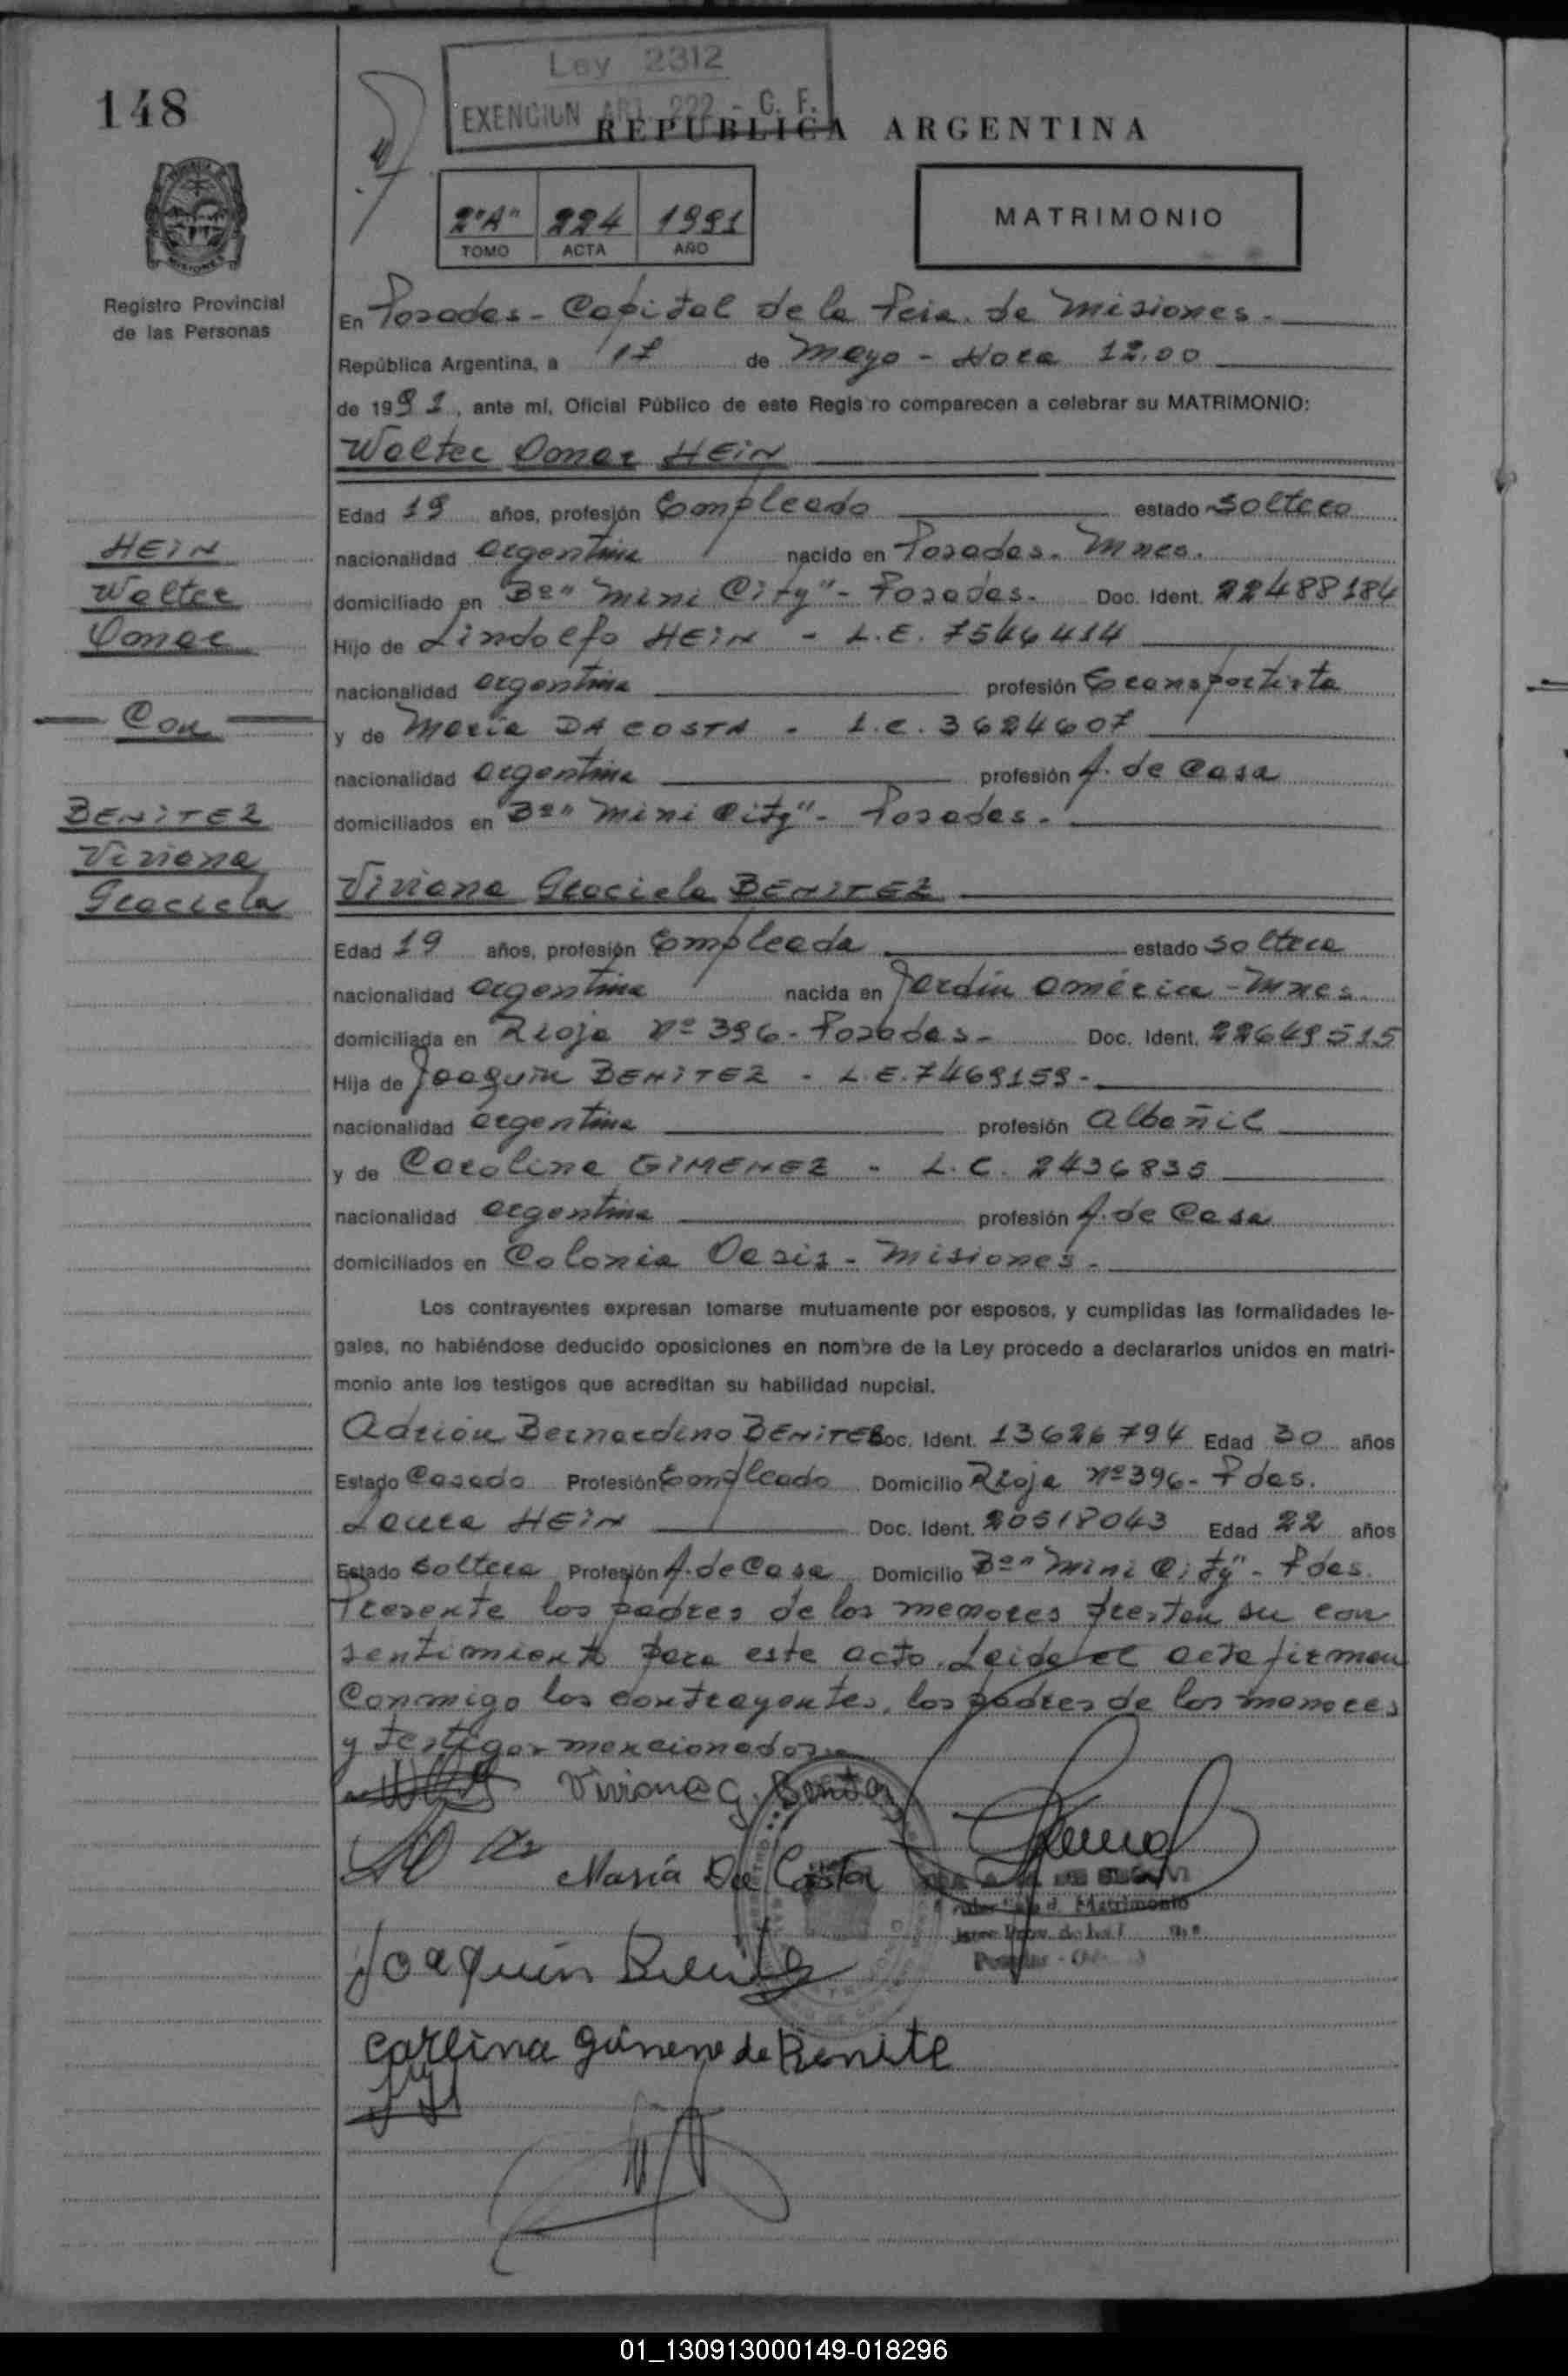 148
Ley 2312
EXENCION ART. 222 - C. F.
REPUBLICA ARGENTINA
2º"A" 224 1991
TOMO ACTA AÑO
MATRIMONIO
Registro Provincial
de las Personas
En Posadas - Capital de la Pcia. de Misiones.
República Argentina, a 17 de Mayo - Hora 12.00
de 1991, ante mí, Oficial Público de este Registro comparecen a celebrar su MATRIMONIO:
Walter Omar HEIN
Edad 19 años, profesión Empleado estado soltero
HEIN
nacionalidad argentina nacido en Posadas. Mnes.
Walter
domiciliado en Bº "Mini City" - Posadas. Doc. Ident. 22488184
Omar
Hijo de Lindolfo HEIN - L.E. 7546414
nacionalidad argentina profesión transportista
Con
y de María DA COSTA - L.C. 3624607
nacionalidad argentina profesión A. de Casa
BENITEZ
domiciliados en Bº "Mini City" - Posadas.
Viviana
Graciela
Viviana Graciela BENITEZ
Edad 19 años, profesión Empleada estado soltera
nacionalidad argentina nacida en Jardín América - Mnes.
domiciliada en Rioja Nº 396 - Posadas - Doc. Ident. 22649515
Hija de Joaquín BENITEZ - L.E. 7469159 -
nacionalidad argentina profesión Albañil
y de Carolina GIMENEZ - L.C. 2436835
nacionalidad argentina profesión A. de Casa
domiciliados en Colonia Oasis - Misiones.
Los contrayentes expresan tomarse mutuamente por esposos, y cumplidas las formalidades le-
gales, no habiéndose deducido oposiciones en nombre de la Ley procedo a declararlos unidos en matri-
monio ante los testigos que acreditan su habilidad nupcial.
Adrián Bernardino BENITEZ Doc. Ident. 13626794 Edad 30 años
Estado Casado Profesión Empleado Domicilio Rioja Nº 396 - Pdas.
Laura HEIN Doc. Ident. 20518043 Edad 22 años
Estado Soltera Profesión A. de Casa Domicilio Bº "Mini City" - Pdas.
Presente los padres de los menores prestan su con
sentimiento para este acto. Leida el acta firman
Conmigo los contrayentes, los padres de los menores
y testigos mencionados.
Viviana G. Benitez
María Da Costa
Matrimonio
Joaquín Benitez
Carlina Gimene de Benite
01_130913000149-018296